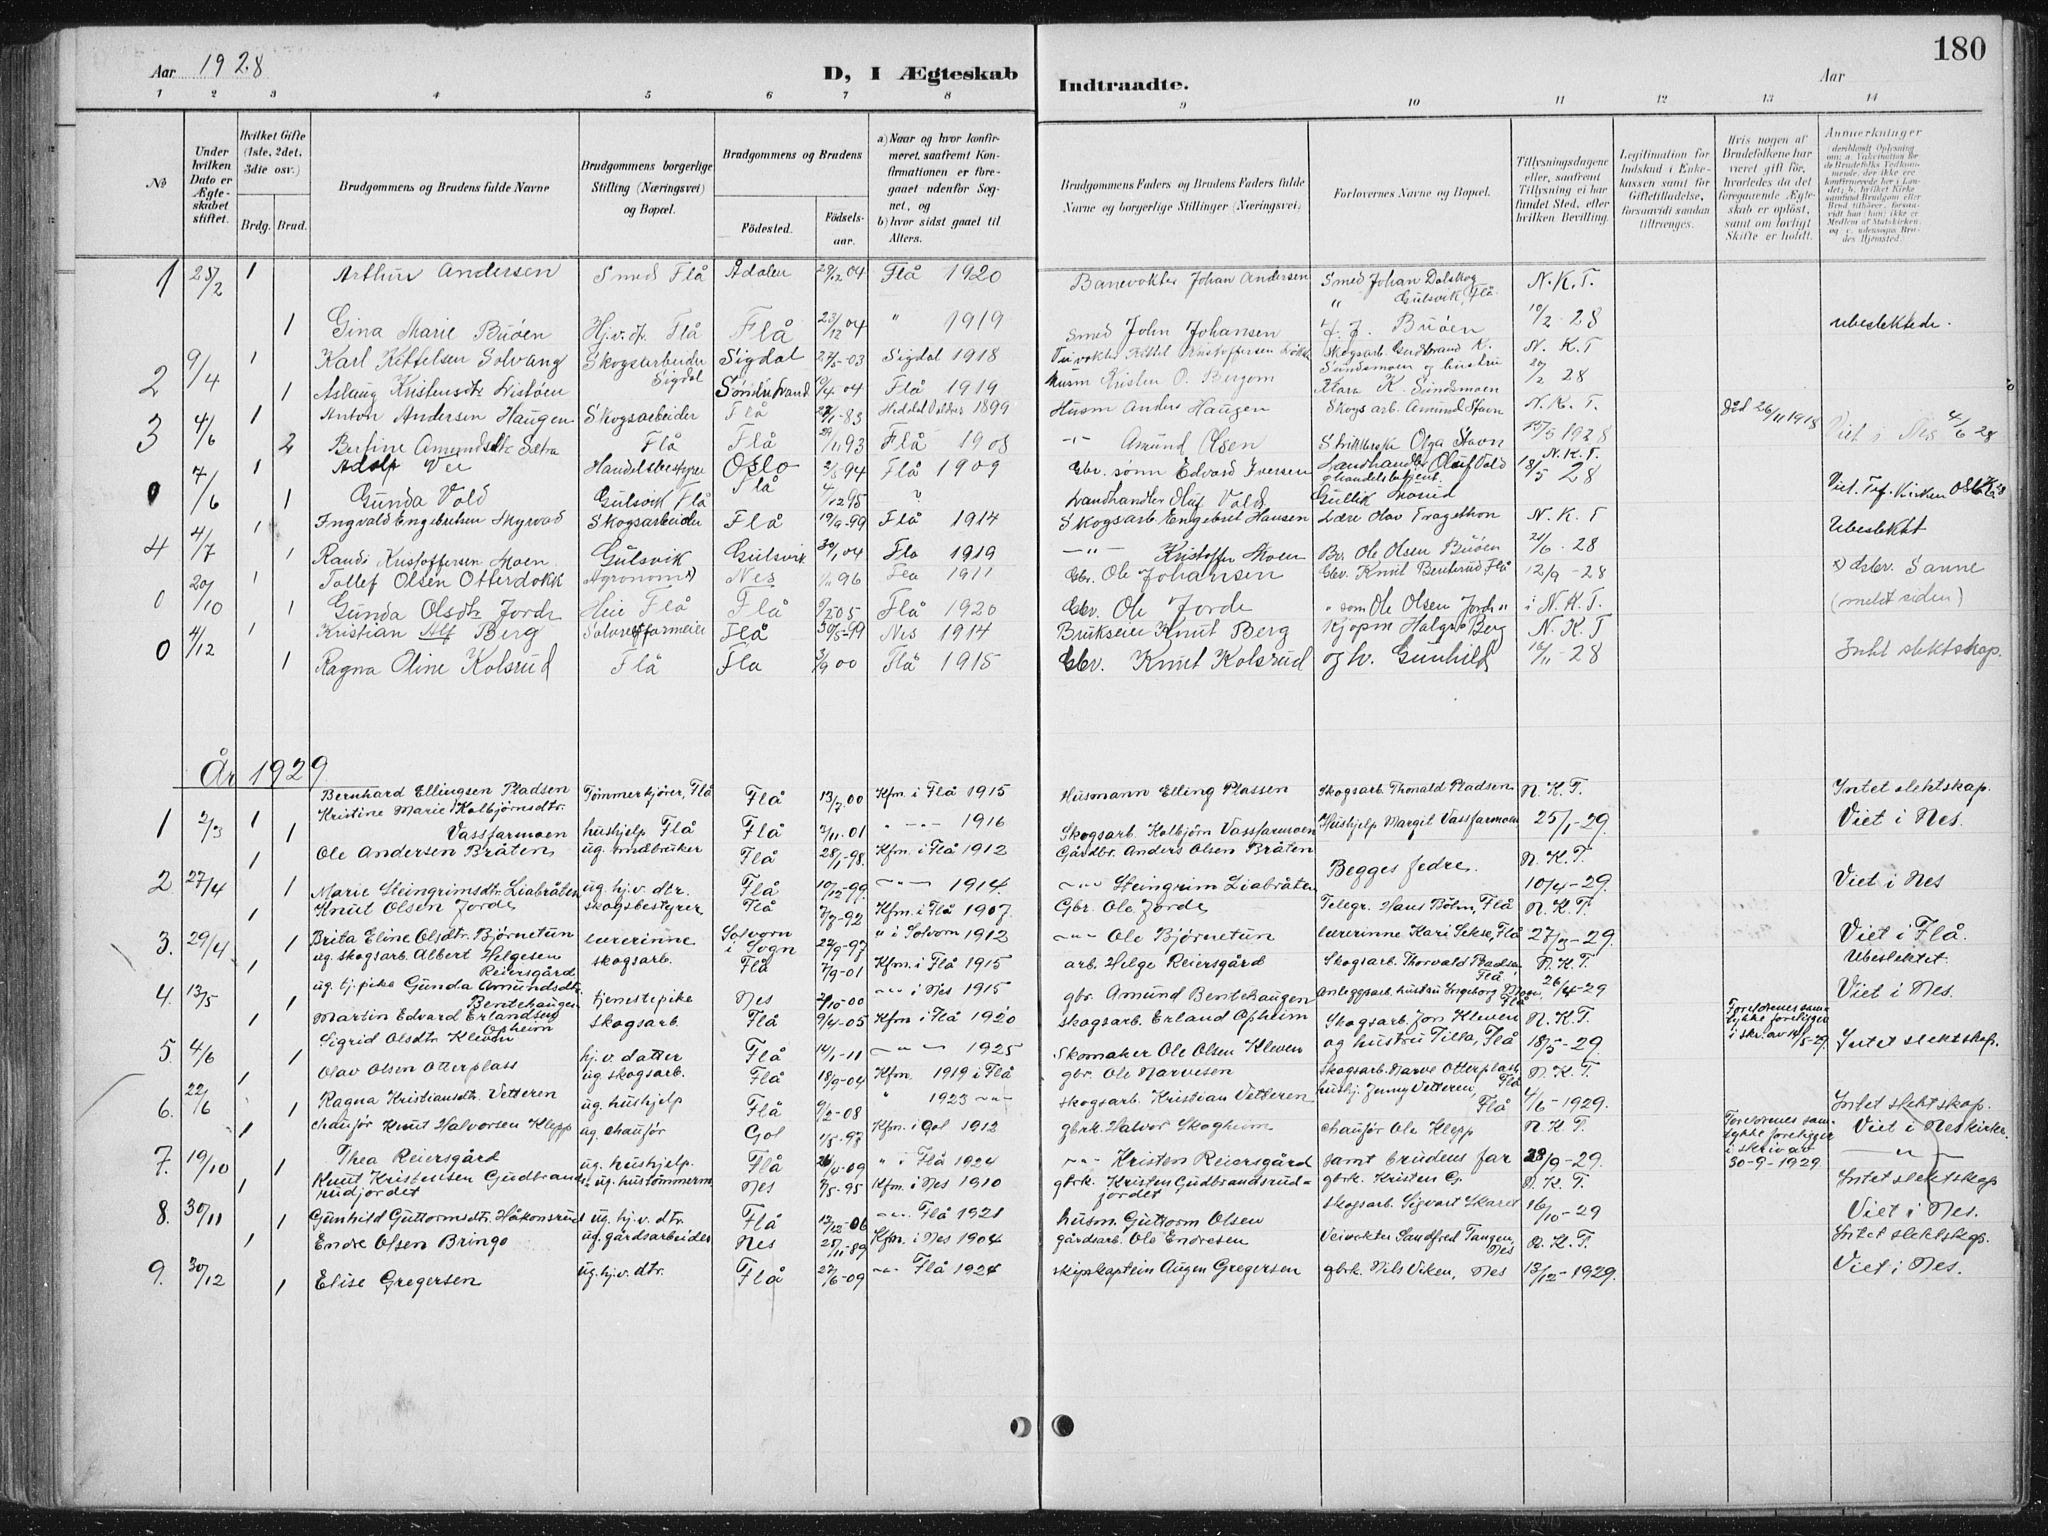 180
Aar 1928
D, I Ægteskab
Indtraadte.
Aar
1 2 3 4 5 6 7 8 9 10 11 12 13 14
No
Under hvilken Dato er Ægteskabet stiftet.
Hvilket Gifte (1ste, 2det, 3die osv.)
Brdg. Brud.
Brudgommens og Brudens fulde Navne
Brudgommens borgerlige Stilling (Næringsvei) og Bopæl.
Brudgommens og Brudens
Fødested. Fødselsaar.
a) Naar og hvor konfirmeret, saafremt Konfirmationen er foregaaet udenfor Sognet, og b) hvor sidst gaaet til Alters.
Brudgommens Faders og Brudens Faders fulde Navne og borgerlige Stillinger (Næringsvei)
Forlovernes Navne og Bopæl.
Tillysningsdagene eller, saafremt Tillysning ei har fundet Sted, efter hvilken Bevilling.
Legitimation for Indskud i Enkekassen samt for Giftetilladelse, forsaavidt sandan tiltrænges.
Hvis nogen af Brudefolkene har været gift før, hvorledes da det foregaaende Ægteskab er opløst, samt om lovligt Skifte er holdt.
Anmerkninger
1 25/2 1 Arthur Andersen Smed Flå Ådalen 29/12 04 Flå 1920 Banevokter Johan Andersen Smed Johan Dalskog N.K.T.
" Gulsvik, Flå
1 Gina Marie Buöen Hj.v.f. Flå Flå 23/12 04 " 1919 Smed John Johansen J. Buöen 10/2-28 ubeslektede.
2 9/4 1 Karl Kittilsen Solvang Skogsarbeider Sigdal Sigdal 27/5-03 Sigdal 1918 Skogsarb. Gudbrand K. N.K.T
Sundsmoen og hustru
1 Aslaug Kristensdtr. 10/4 04 Flå 1919 Husm Kristen O. Bergom Mara K. Sundsmoen 20/2 28
3 4/6 1 Anton Andersen Haugen Skogsarbeider Flå 83 1899 Husm Anders Haugen Skogsarb. Amund Stavn N.K.T. død 26/11 1918
2 Bertine Amundsdtr Sætra Flå Flå 29/11 93 Flå 1908 -"- Amund Olsen Olga Stavn 15/5 1928 Viet i Nes 4/6 28
0 7/6 1 Adolf Vee Handelsbestyrer Oslo 94 Flå 1909 Gbr. sønn Edvard Iversen Landhandler Oluf Vold N.K.T.
18/5 28
1 Gunda Vold Gulsvik Flå Flå 4/12 95 Landhandler Oluf Vold Gullik
4 4/7 1 Ingvald Engebretsen Myrvad Skogsarbeider Flå 19/9-99 Flå 1914 Skogsarb Engebret Hansen Lære Olav Tragethon N.K.T Ubeslektet
1 Randi Kristoffersen Moen Gulsvik Gulsvik 30/1 04 Fla 1919 -"- Kristoffer Moen Br. Ole Olsen Buöen 21/6-28
0 20/10 1 Tollef Olsen Otterdokk Agronom x) Nes 96 Fla 1911 Gbr. Ole Johansen Gbr. Knut Benterud Flå 12/9-28 x) Gbr. Sanne
1 Gunda Olsdtr Jorde Heie Flå Flå 05 Flå 1920 Gbr. Ole Jorde " som Ole Olsen Jorde i N.K.T. (meldt siden)
0 4/12 1 Kristian Alf Berg Flå 30/5-99 Nes 1914 Brukseier Knut Berg Kjøpm Halgr. Berg N.K.T
1 Ragna Oline Kolsrud Flå Fla 3/9 00 Flå 1915 Gbr. Knut Kolsrud og hr. Gunhild 10/11-28 Intet slektskap.
År 1929
Bernhard Ellingsen Pladsen Tømmerkjører, Flå Flå 13/7 00 Kfm. i Flå 1915 Husmann Elling Plassen Skogsarb. Thorvald Pladsen N.K.T. Intet slektskap.
1 2/3 1 Kristine Marie Kolbjørnsdtr.
1 Vassfarmoen hushjelp Flå Flå 2/11-01 -"- 1916 Skogsarb. Kolbjørn Vassfarmoen Hushjelp Margit Vassfarmoen 25/1-29. Viet i Nes.
1 Ole Andersen Bråten ug. småbruker Flå 28/1-98. Kfm. i Flå 1912 Gårdbr. Anders Olsen Bråten Begges fedre. N.K.T.
2 27/4 1 Marie Steingrimsdtr. Liabråten ug. hj.v. dtr. Flå 19/12-99. -"- 1914. -"- Steingrim Liabråten 10/4-29. Viet i Nes
1 Knut Olsen Jorde skogsbestyrer Flå 2/7-92 Kfm. i Flå 1907. Gbr. Ole Jorde Telegr. Hans Böhn, Flå N.K.T.
3. 29/4 1 Brita Eline Olsdtr. Bjørnetun lærerinne Solvorn i Sogn 22/9-97 " i Solvorn 1912 -"- Ole Bjørnetun lærerinne Kari Sekse, Flå 27/3-29. Viet i Flå.
1 ug. skogsarb. Albert Helgesen Reiersgård skogsarb. Flå 7/9-01 Kfm. i Flå 1915 arb. Helge Reiersgård Skogsarb. Thorvald Pladsen, Flå N.K.T. Ubeslektet.
4. 13/5 1 ug. tj.pike Gunda Amundsdtr. Bentehaugen tjenestepike Nes 2/10-00 -"- i Nes 1915 gbr. Amund Bentehaugen Anleggsarb. hustru Ingeborg Moen, Flå 26/4-29 Viet i Nes.
1 Martin Edvard Erlandsen Opheim skogsarb. Flå 9/4-05 Kfm. i Flå 1920 skogsarb. Erland Opheim Skogsarb. Jon Kleven N.K.T. Foreldrenes samtykke foreligger i skr. av 14/5-29.
5 4/6 1 Sigrid Olsdtr. Kleven hj.v. datter Flå 14/1-11 -"- 1925 Skomaker Ole Olsen Kleven og hustru Tilla, Flå 18/5-29. Intet slektskap.
1 Olav Olsen Otterplass ug. skogsarb. Flå 18/9-04 Kfm. 1919 i Flå gbr. Ole Narvesen Skogsarb. Narve Otterplass, Flå N.K.T.
6. 22/6 1 Ragna Kristiansdtr. Vetteren ug. hushjelp Flå 9/2-08 " 1923 -"- skogsarb. Kristian Vetteren hushj. Jenny Vetteren, Flå 4/6-1929. Intet slektskap.
1 chaufør Knut Halvorsen Klepp ug. chaufør Gol 1/5-97 Kfm. i Gol 1912 gbrk. Halvor Skogheim chaufør Ole Klepp N.K.T. Foreldrenes samtykke foreligger i skriv av 30-9-1929. Viet i Nes kirke.
7. 19/10 1 Thea Reiersgård ug. hushjelp. Flå 09 " i Flå 1924 -"- Kristen Reiersgård samt brudens far 28/9-29. -"-
1 Knut Kristensen Gudbrandsrudjordet ug. hustømmerm. Nes 7/5-95 Kfm. i Nes 1910 gbrk. Kristen Gudbrandsrudjordet gbrk. Kristen G. N.K.T. Intet slektskap
8. 30/11 1 Gunhild Guttormsdtr. Håkonsrud ug. hj.v. dtr. Flå 12/12-06 -"- Flå 1921 husm. Guttorm Olsen skogsarb. Sigvart Skaret 16/10-29 Viet i Nes.
1 Endre Olsen Bringo ug. gårdsarbeider Nes 25/11-89 Kfm. i Nes 1904 gårdsarb. Ole Endresen Veivokter Sandfred Tangen, Nes N.K.T. Intet slektskap.
9. 30/12 1 Elise Gregersen ug. hj.v. dtr. Flå 27/6-09 -"- Flå 1924 skipskaptein Augen Gregersen gbrk. Nils Viken, Nes 13/12-1929. Viet i Nes.